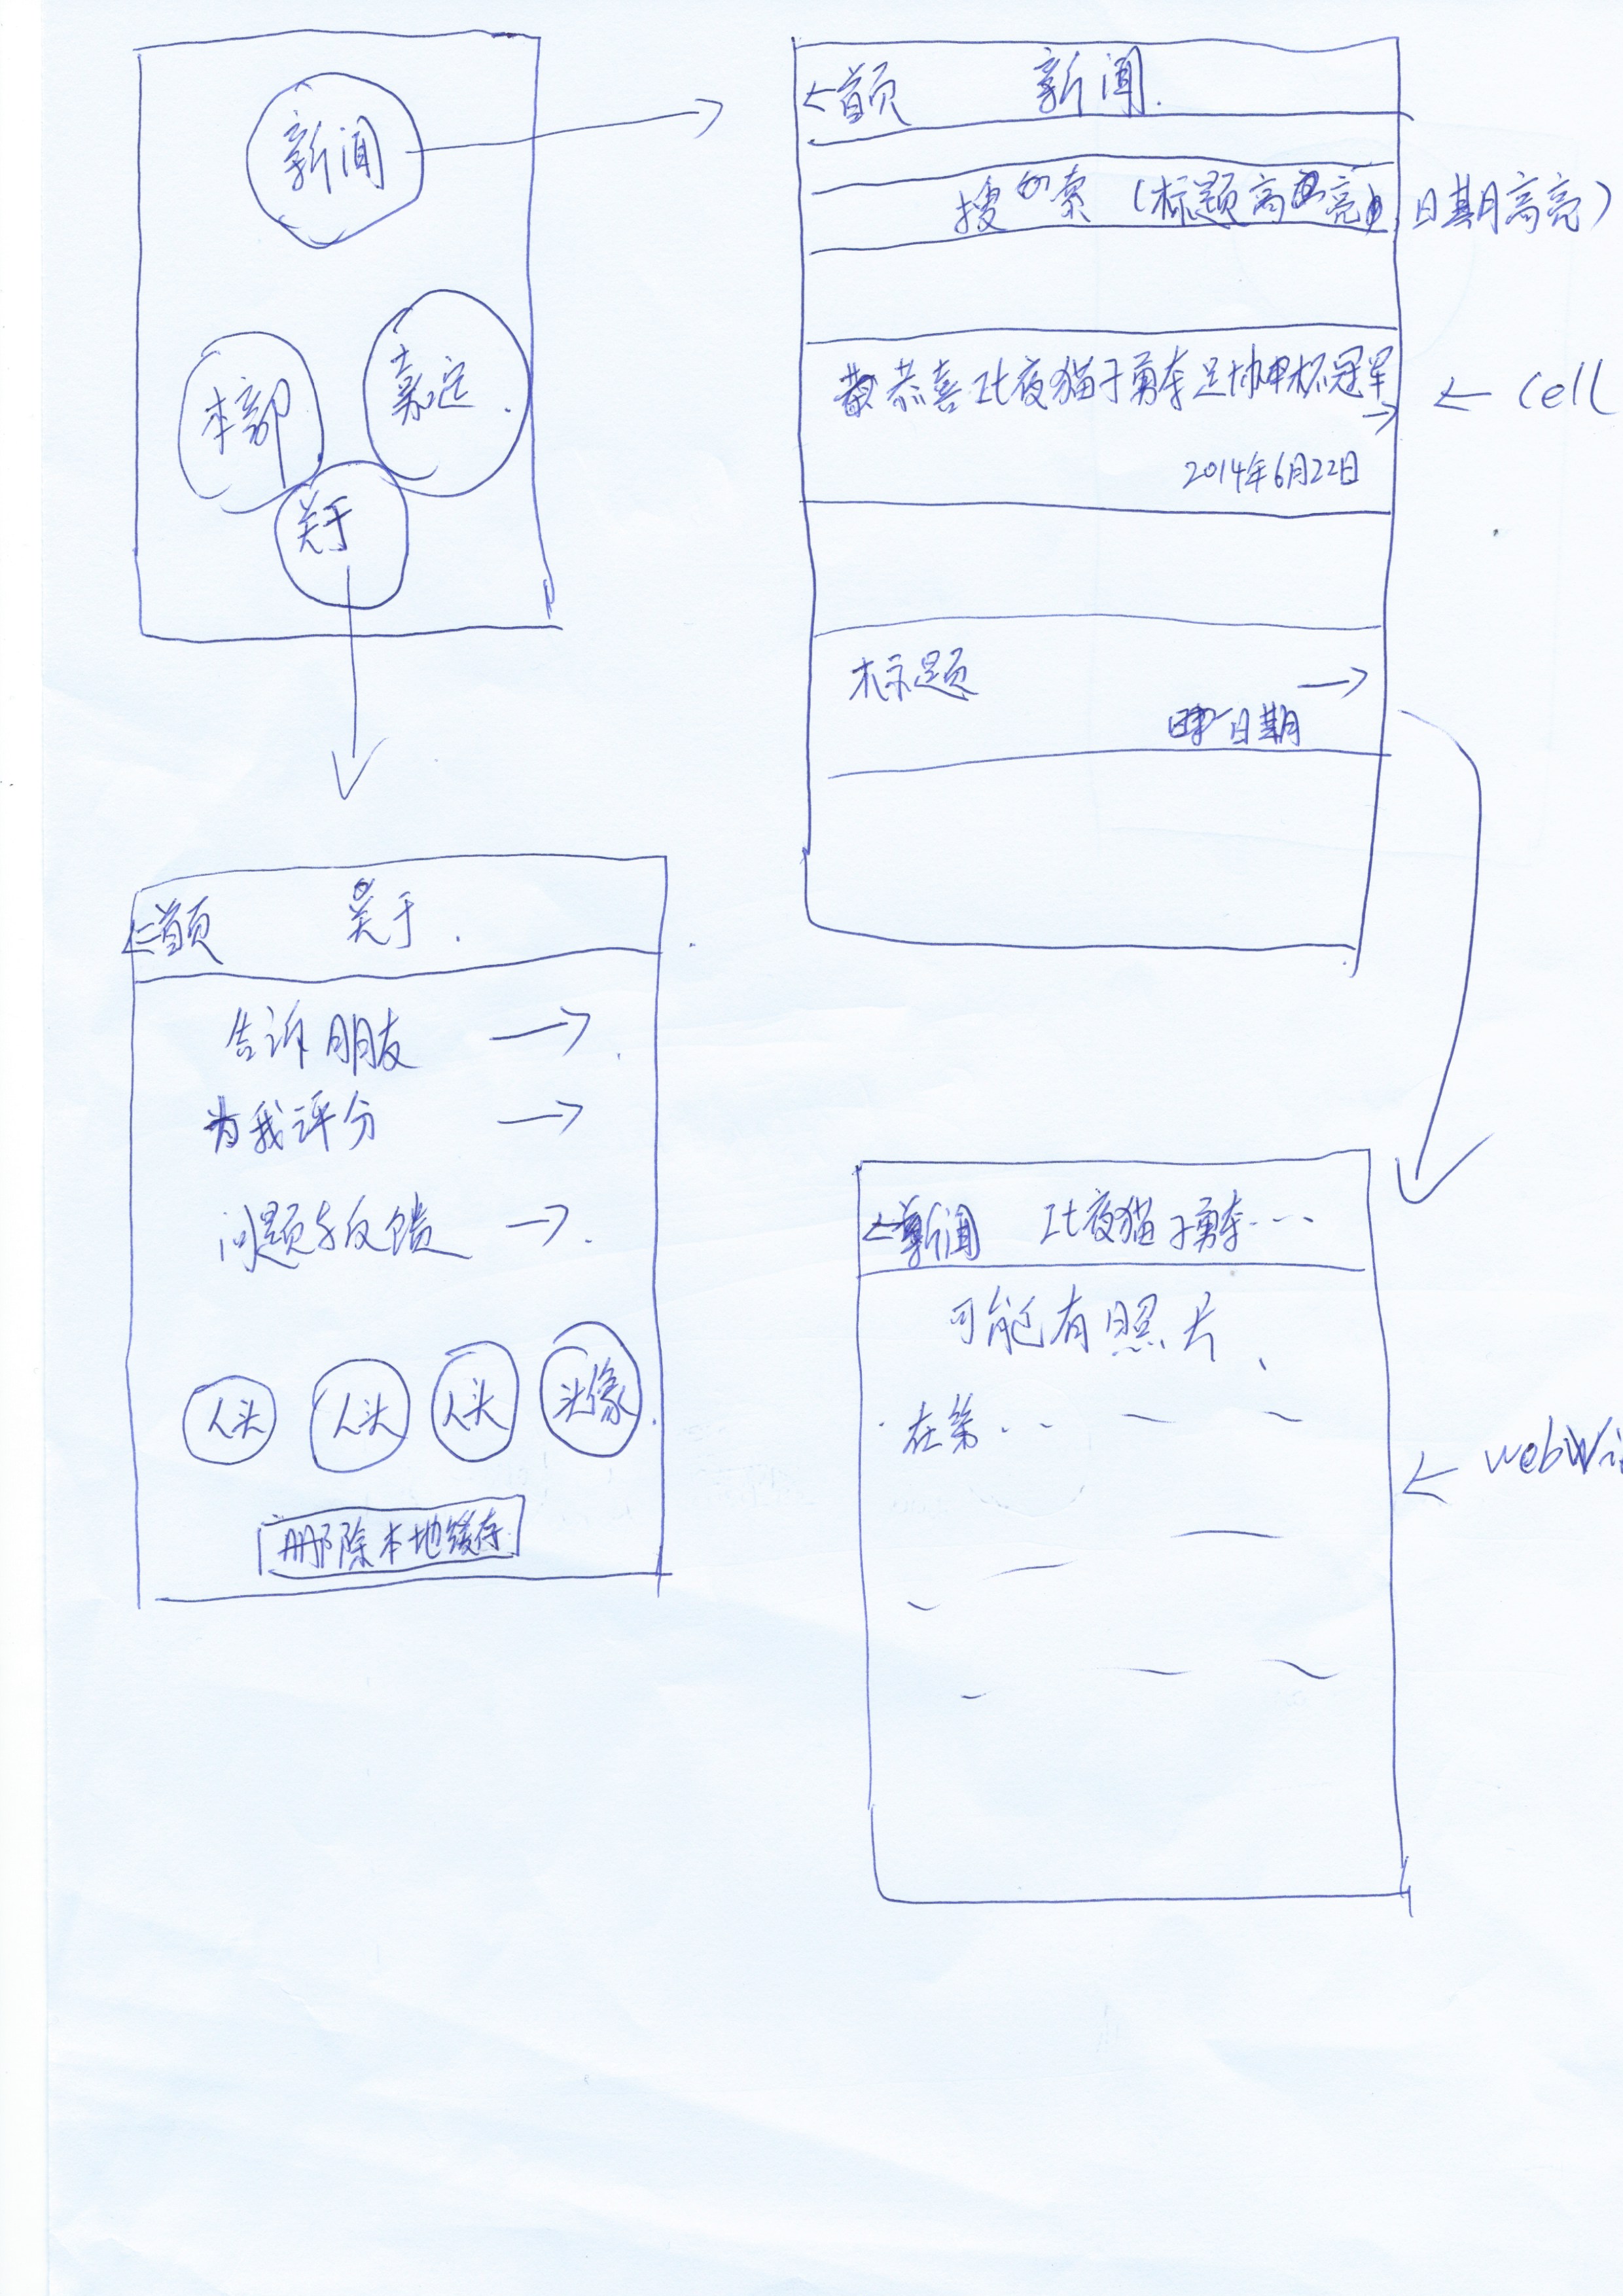 新闻
本部
嘉定
关于
←首页 新闻
搜索(标题高亮,日期高亮)
恭喜比夜猫子勇夺足协甲杯冠军
→
← cell
2014年6月22日
标题 →
日期
←首页 关于
告诉朋友 →
为我评分 →
问题与反馈 →
人头 人头 人头 头像
删除本地缓存
←新闻 比夜猫子勇夺...
可能有照片
在第...
←